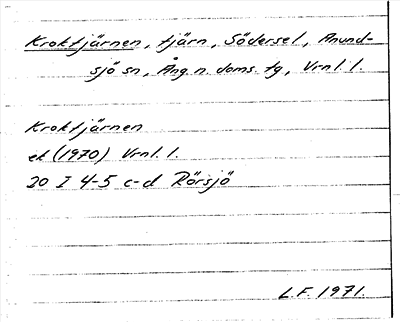 Kroktjärnen, tjärn, Södersel, Anund-
sjö sn, Ång. n. doms. tg, Vrnl. l.
Kroktjärnen
ek (1970) Vrnl. l.
20 I 4-5 c-d Rörsjö
L.F. 1971.